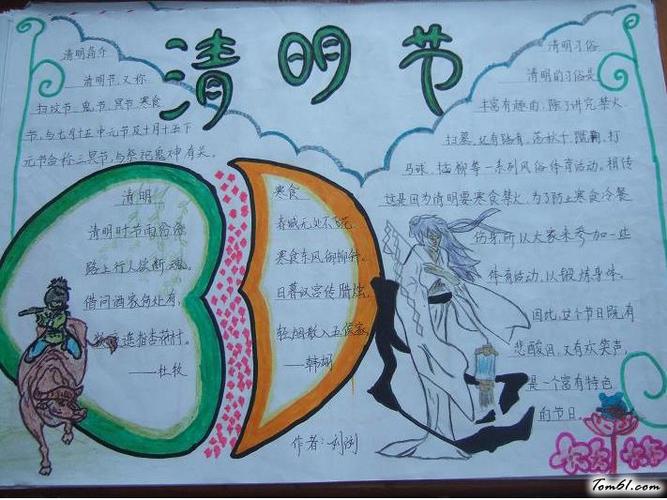 清明节
清明简介
清明节，又称
扫坟节、鬼节、冥节、寒食
节，与七月十五中元节及十月十五下
元节合称三冥节，与祭祀鬼神有关。
清明
清明时节雨纷纷
路上行人欲断魂。
借问酒家何处有，
遥指杏花村。
——杜牧
寒食
春城无处不飞花
寒食东风御柳斜。
日暮汉宫传腊烛，
轻烟散入五侯家
——韩翃
作者：刘
清明习俗
清明的习俗是
丰富有趣的，除了讲究禁火
扫墓，还有踏青、荡秋千、蹴鞠、打
马球、插柳等一系列风俗体育活动。相传
这是因为清明要寒食禁火，为了防止寒食冷餐
伤身，所以大家来参加一些
体育活动，以锻炼身体。
因此，这个节日既有
悲酸泪，又有欢笑声，
是一个富有特色
的节日。
Tom61.com